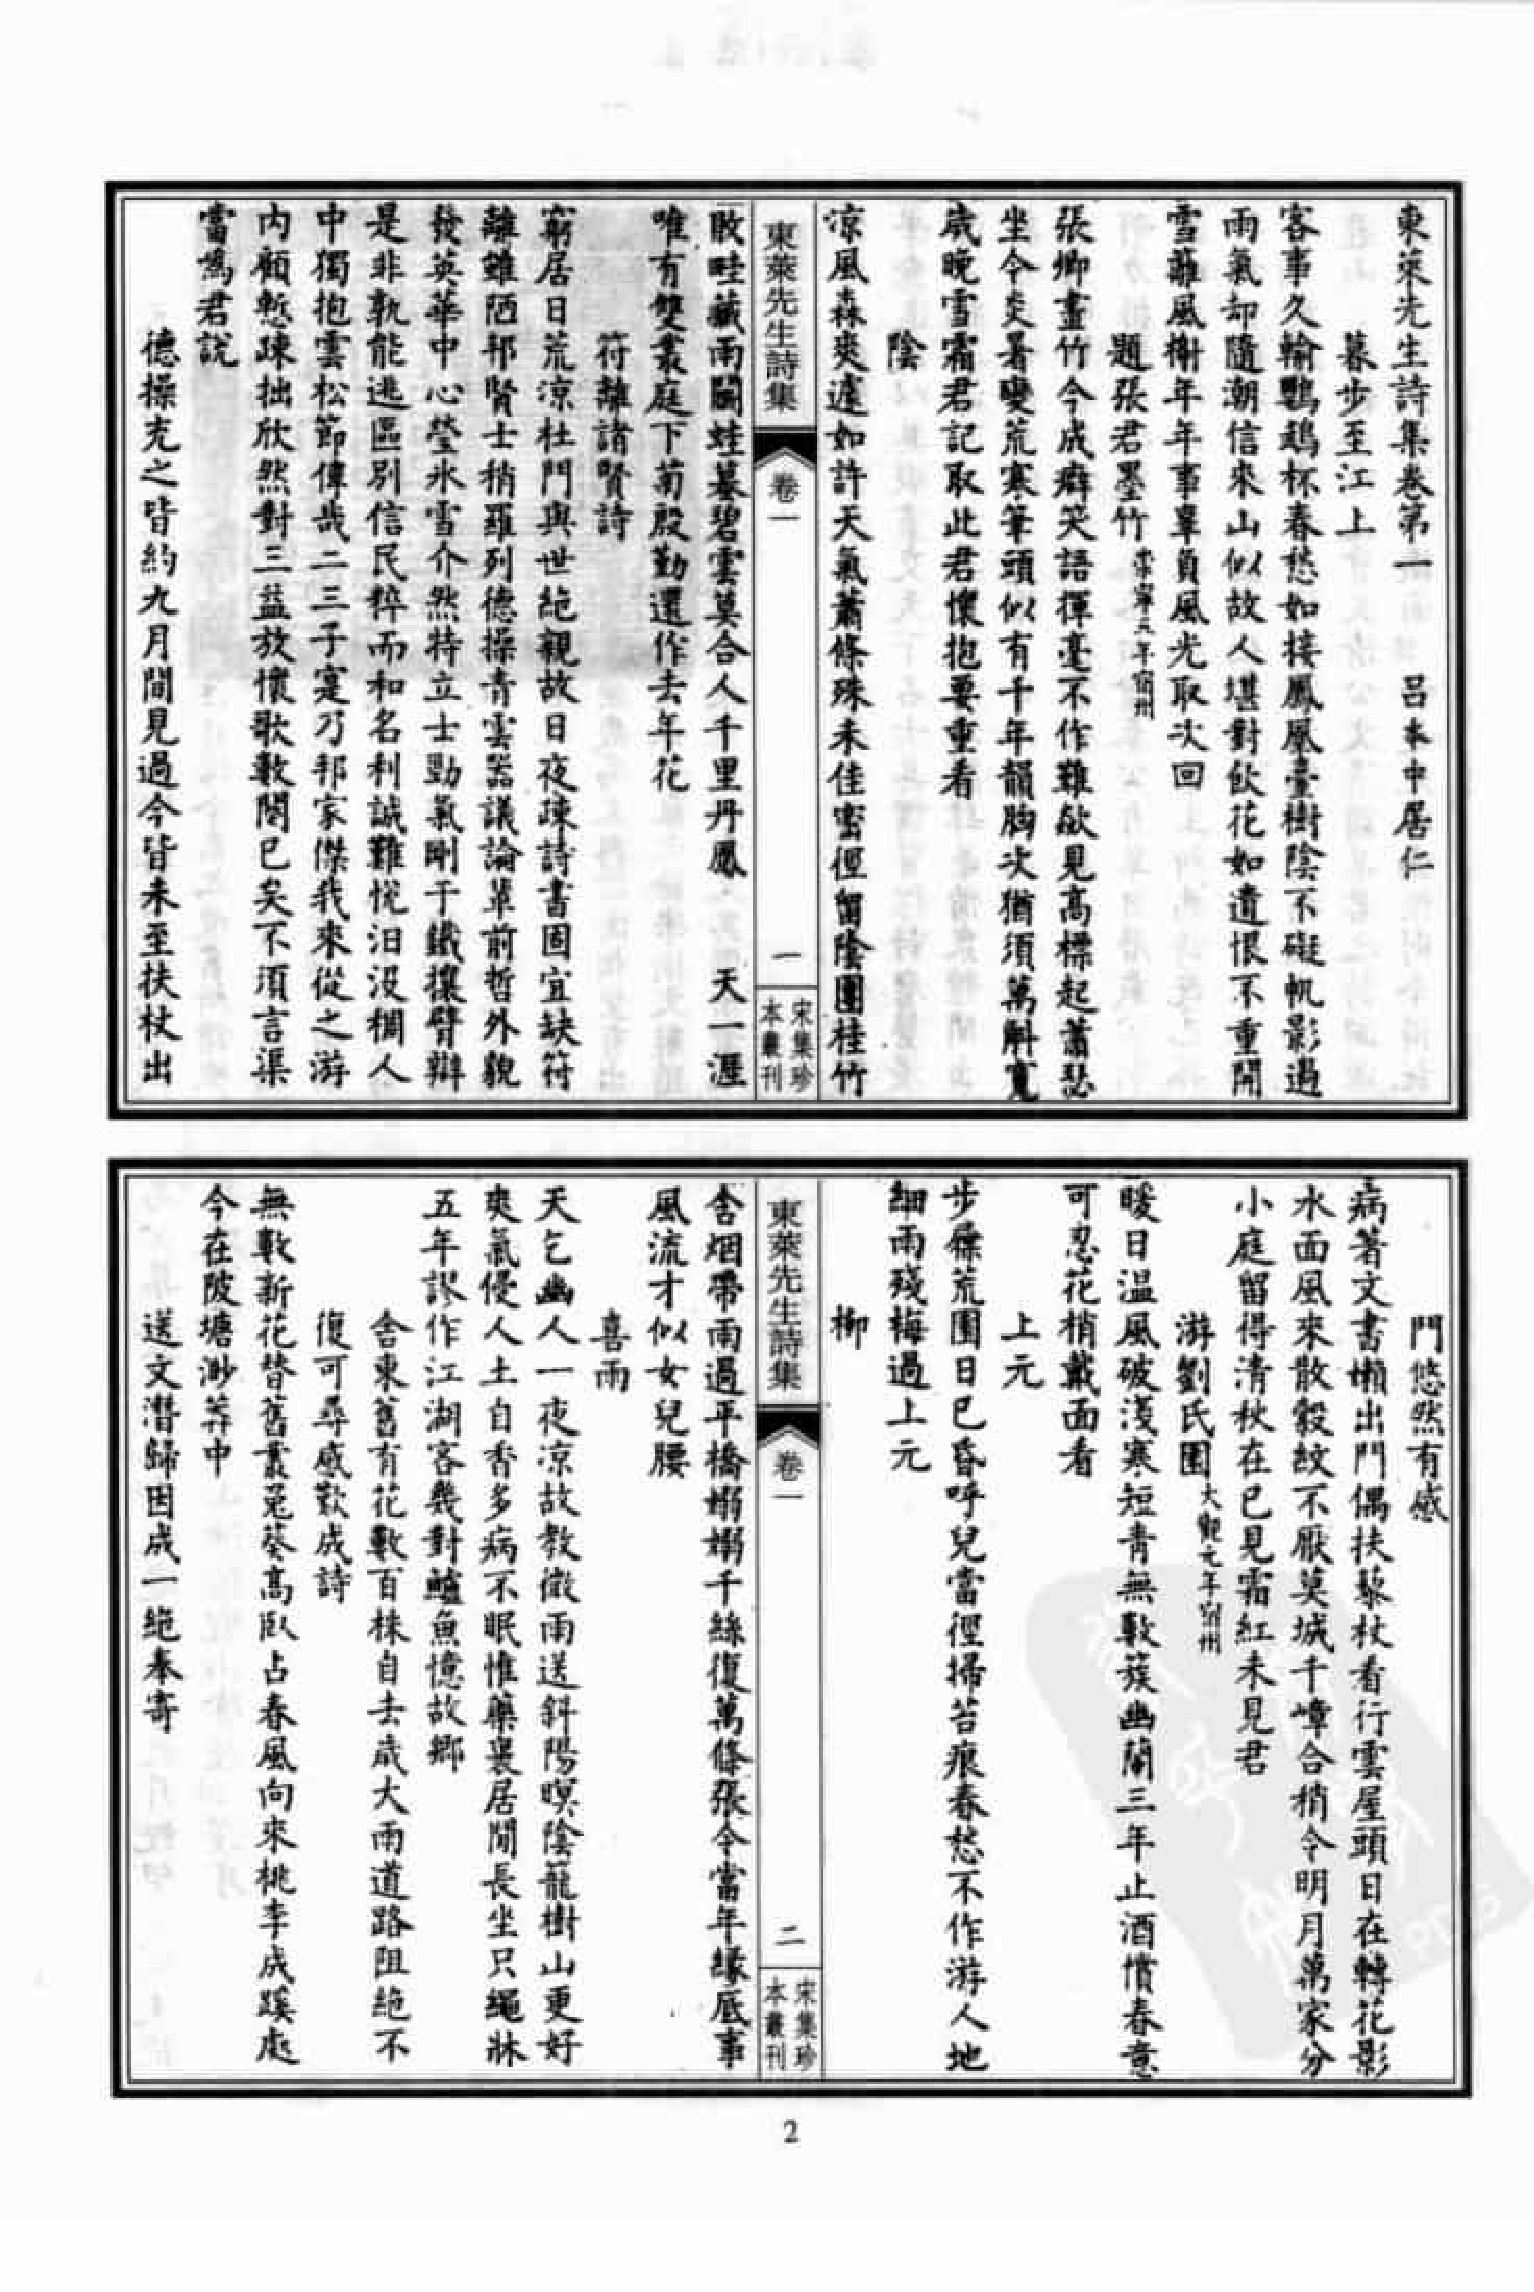 東萊先生詩集卷第一　呂本中居仁
暮步至江上
客事久輸鸚鵡杯春愁如接鳳凰臺樹陰不礙帆影過
雨氣却隨潮信來山似故人堪對飲花如遺恨不重開
雪籬風榭年年事辜負風光取次回
題張君墨竹 崇寧元年宿州
張卿畫竹今成癖笑語揮毫不作難欲見高標起蕭瑟
坐令炎暑變荒寒筆頭似有千年韻胸次猶須萬斛寬
歲晚雪霜君記取此君懷抱要重看
陰
凉風森爽遽如許天氣蕭條殊未佳密徑留陰團桂竹
東萊先生詩集
卷一
一
宋集珍
本叢刊
敗畦藏雨鬭蛙蟇碧雲莫合人千里丹鳳　天一涯
唯有雙叢庭下菊殷勤還作去年花
符離諸賢詩
窮居日荒凉杜門與世絶親故日夜疎詩書固宜缺符
離雖陋邦賢士稍羅列德操青雲器議論輩前哲外貌
發英華中心瑩氷雪介然特立士勁氣剛于鐵攘臂辯
是非孰能逃區別信民粹而和名利誠難悅汨沒稠人
中獨抱雲松節偉哉二三子寔乃邦家傑我來從之游
内顧慙疎拙欣然對三益放懷歌數闋已矣不須言渠
當爲君説
德操充之皆約九月間見過今皆未至扶杖出
門悠然有感
病著文書懶出門偶扶藜杖看行雲屋頭日在轉花影
水面風來散縠紋不厭莫城千嶂合稍令明月萬家分
小庭留得清秋在已見霜紅未見君
游劉氏園 大觀元年宿州
暖日温風破淺寒短青無數簇幽蘭三年止酒慣春意
可忍花梢戴面看
上元
步屧荒園日已昏呼兒當徑掃苔痕春愁不作游人地
細雨殘梅過上元
柳
東萊先生詩集
卷一
二
宋集珍
本叢刊
含烟帶雨過平橋嫋嫋千絲復萬條張令當年緣底事
風流才似女兒腰
喜雨
天乞幽人一夜凉故教微雨送斜陽暝陰籠樹山更好
爽氣侵人土自香多病不眠惟藥裹居閒長坐只繩牀
五年謬作江湖客幾對鱸魚憶故鄉
舍東舊有花數百株自去歲大雨道路阻絶不
復可尋感歎成詩
無數新花替舊叢兎葵高臥占春風向來桃李成蹊處
今在陂塘渺莽中
送文潛歸因成一絶奉寄
2